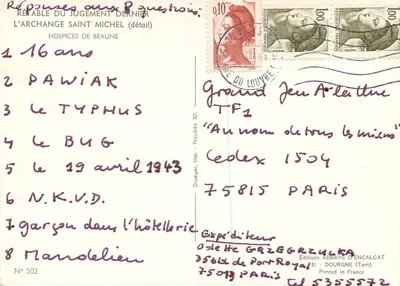 Réponses aux 8 questions.
RETABLE DU JUGEMENT DERNIER
L'ARCHANGE SAINT MICHEL (détail)
HOSPICES DE BEAUNE
1 16 ans
2 PAWIAK
3 Le TYPHUS
4 Le BUG
5 le 19 avril 1943
6 N.K.V.D.
7 garçon dans l'hôtellerie
8 Mandelieu
N° 502
Draeger, Imp. - Fepoédée 301
0,10
1,00
1,00
RUE DU LOUVRE
Grand Jeu A-lettre
TF1
"Au nom de tous les miens"
Cedex 1504
75815 PARIS
Expéditeur
Odette GRZEGRZULKA
35 bd de Port Royal
75013 PARIS
Tel 5355572
Editions ABBAYE D'ENCALCAT
81 - DOURGNE (Tarn)
Printed in France